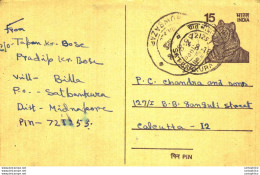 From
C/o- Tapan Kr. Bose
Pradip Kr. Bose
Vill- Billa
P.O- Satbankura
Dist- Midnapore
PIN- 721253.
15
भारत
INDIA
P.C. Chandra and sons.
127/I B.B. Ganguli Street
Calcutta - 12
पिन PIN